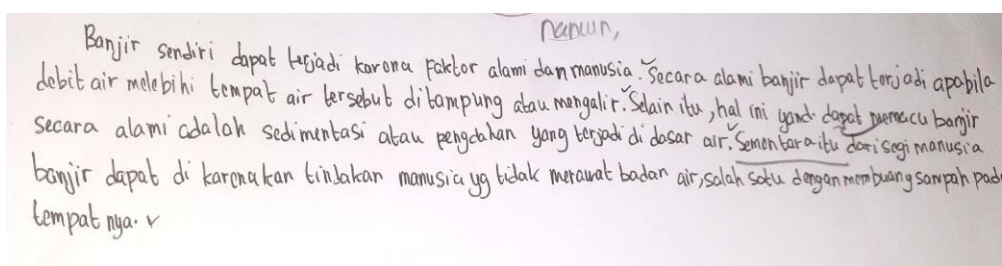 namun,
Banjir sendiri dapat terjadi karena faktor alami dan manusia. Secara alami banjir dapat terjadi apabila
debit air melebihi tempat air tersebut ditampung atau mengalir. Selain itu, hal ini yang dapat memacu banjir
secara alami adalah sedimentasi atau yang terjadi di dasar air. Sementara itu dari segi manusia
banjir dapat di karenakan tindakan manusia yg tidak merawat badan air, salah satu dengan membuang sampah pada
tempat nya.